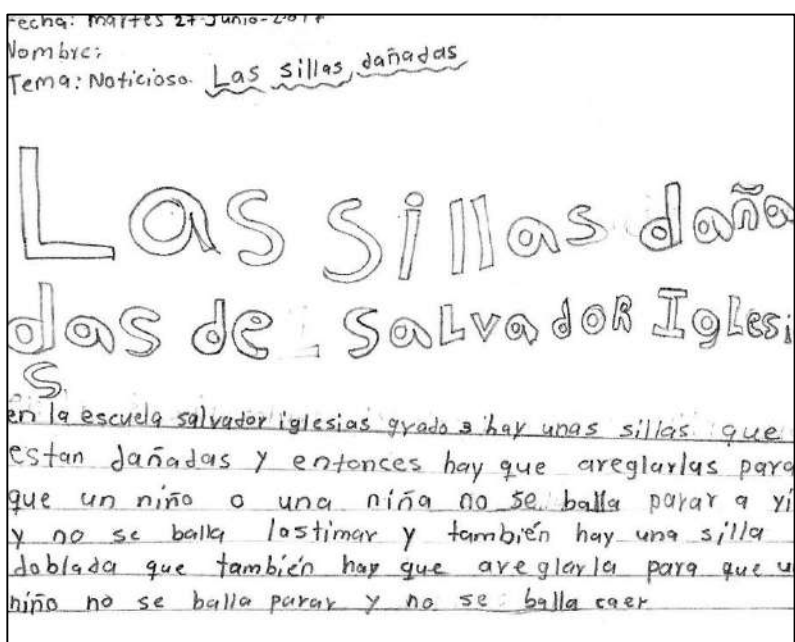 Fecha: martes 27-Junio-2017
Nombre:
Tema: Noticioso. Las sillas dañadas
Las sillas daña
das de Salvador Iglesi
s.
en la escuela salvador iglesias grado 3 hay unas sillas que
estan dañadas y entonces hay que areglarlas para
que un niño o una niña no se balla parar a yi
y no se balla lastimar y también hay una silla
doblada que también hay que areglarla para que u
niño no se balla parar y no se balla caer